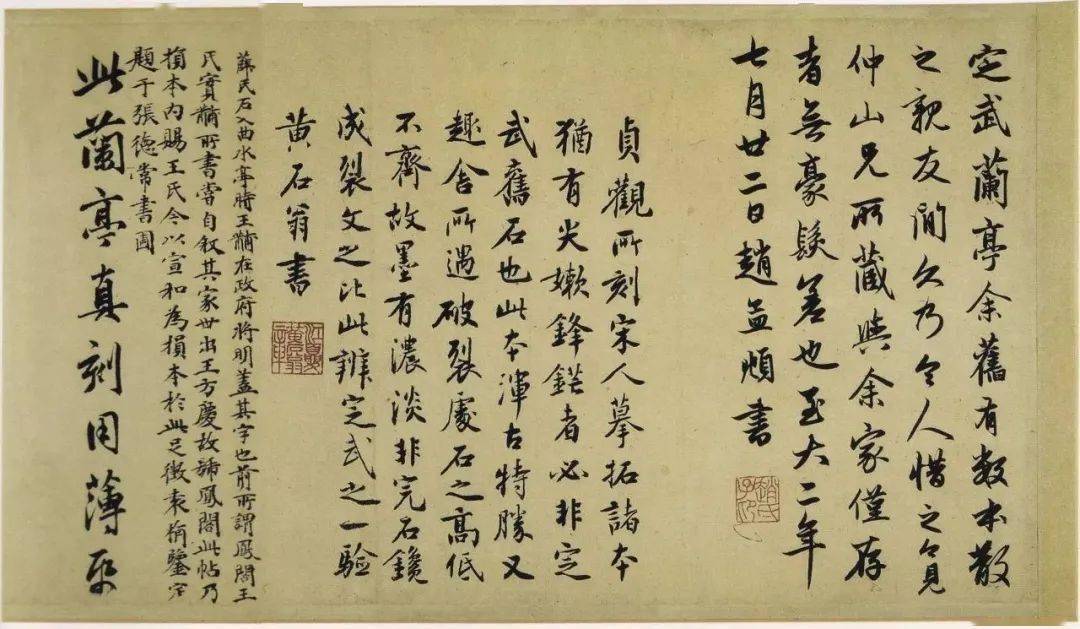 定武蘭亭余舊有數本散
之親友間久乃令人惜之今見
仲山兄所藏與余家僅存
者無豪髮差也至大二年
七月廿二日趙孟頫書
趙氏子昂
貞觀所刻宋人摹拓諸本
猶有尖嫩鋒鋩者必非定
武舊石也此本渾古特勝又
趣舍所遇破裂處石之高低
不齊故墨有濃淡非完石鑱
成裂文之比此辨定武之一驗
黄石翁書
薛氏石入曲水亭時王黼在政府將明蓋其字也前所謂鳳閣王
氏實黼所書嘗自叙其家世出王方慶故稱鳳閣此帖乃
損本内賜王氏今以宣和為損本於此足徵袁桷鑒定
題于張德常書圃
此蘭亭真刻用薄帋